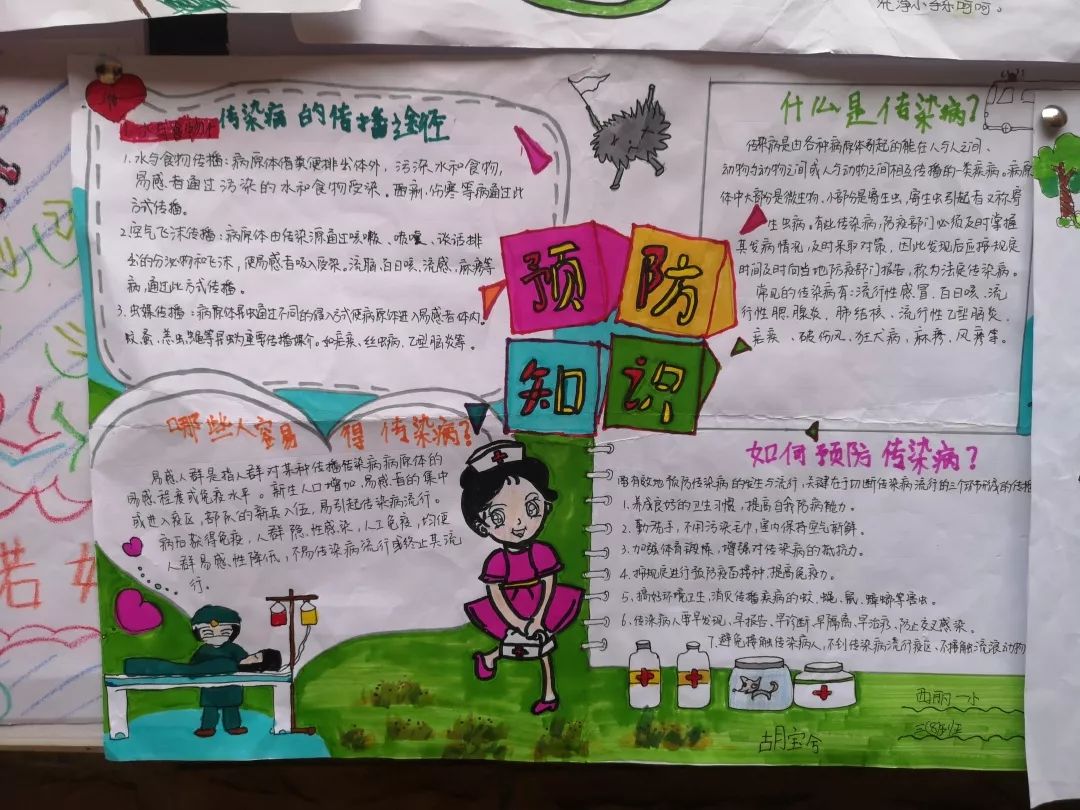 洗净小手乐呵呵。
传染病的传播途径
1.水与食物传播：病原体借粪便排出体外，污染水和食物，
易感者通过污染的水和食物受染。西痢、伤寒等病通过此
方式传播。
2.空气飞沫传播：病原体由传染源通过咳嗽、喷嚏、谈话排
出的分泌物和飞沫，使易感者吸入受染。流脑、百日咳、流感、麻疹等
病，通过此方式传播。
3.虫媒传播：病原体昆虫通过不同的侵入方式使病原体进入易感者体内。
蚊、蚤、恙虫、蝇等昆虫为重要传播媒介。如疟疾、丝虫病、乙型脑炎等。
什么是传染病？
传染病是由各种病原体引起的能在人与人之间、
动物与动物之间或人与动物之间相互传播的一类疾病。病原
体中大部分是微生物，小部分是寄生虫，寄生虫引起者又称寄
生虫病。有些传染病，防疫部门必须及时掌握
其发病情况，及时采取对策，因此发现后应按规定
时间及时向当地防疫部门报告，称为法定传染病。
常见的传染病有：流行性感冒、百日咳、流
行性腮腺炎、肺结核、流行性乙型脑炎、
疟疾、破伤风、狂犬病、麻疹、风疹等。
预防
知识
哪些人容易得传染病？
易感人群是指人群对某种传播传染病病原体的
易感程度或免疫水平。新生人口增加、易感者的集中
或进入疫区，部队的新兵入伍，易引起传染病流行。
病后获得免疫，人群隐性感染，人工免疫，均使
人群易感性降低，不易传染病流行或终止其流
行。
如何预防传染病？
有效地预防传染病的发生与流行，关键在于切断传染病流行的三个环节形成的传播
1.养成良好的卫生习惯，提高自我防病能力。
2.勤洗手，不用污染毛巾，室内保持空气新鲜。
3.加强体育锻炼，增强对传染病的抵抗力。
4.按规定进行预防疫苗接种，提高免疫力。
5.搞好环境卫生，消灭传播疾病的蚊、蝇、鼠、蟑螂等害虫。
6.传染病人要早发现、早报告、早诊断、早隔离、早治疗，防止交叉感染。
7.避免接触传染病人，不到传染病流行疫区、不接触流浪动物
西丽一小
胡宝兮